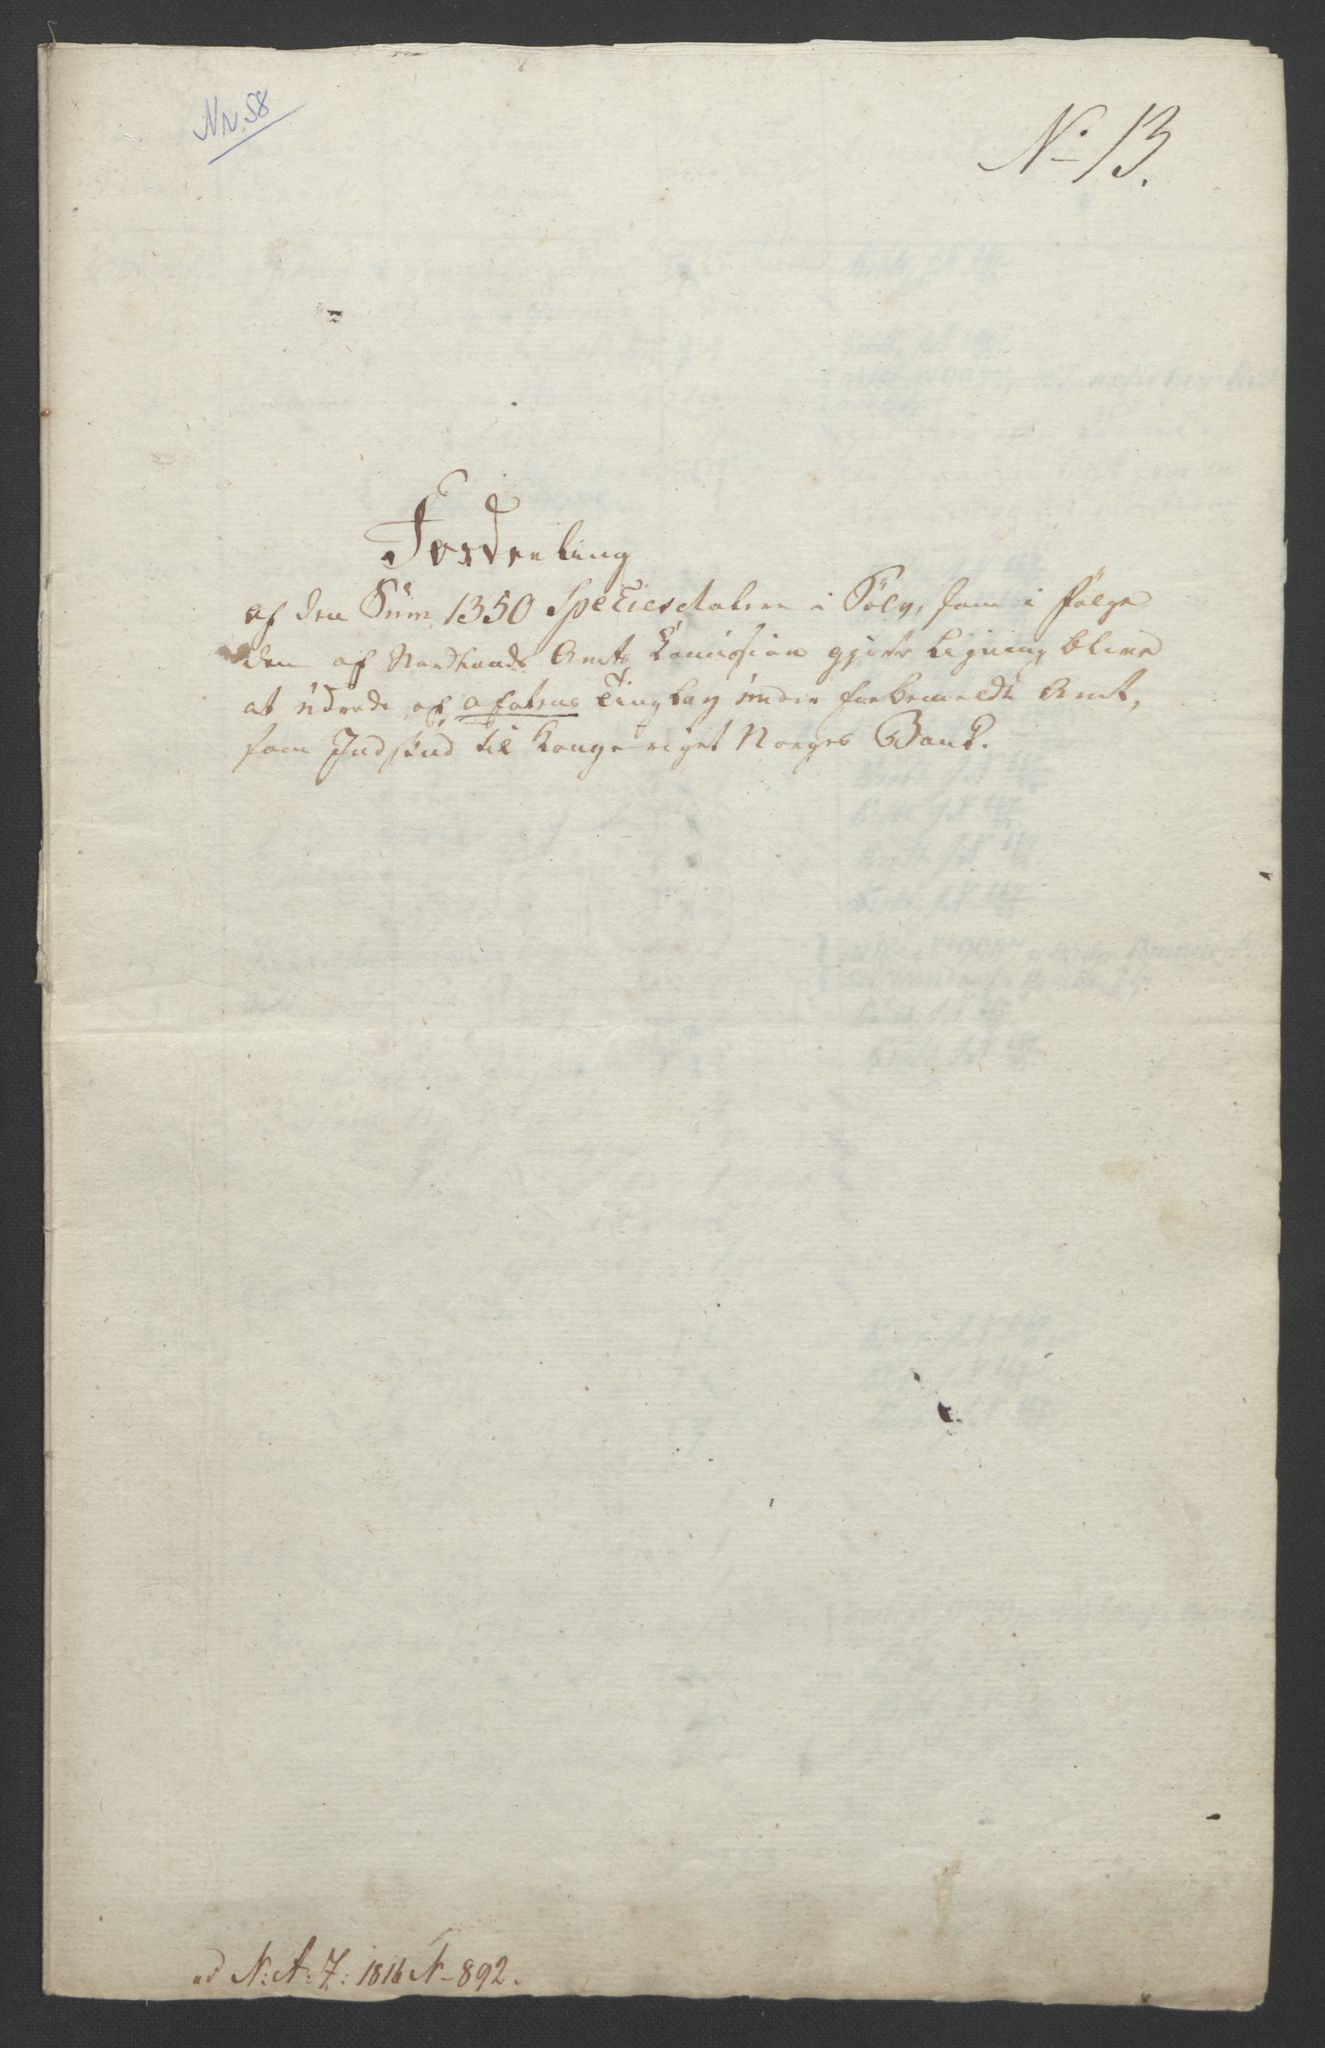 Nr. 58
No 13.
Fordeeling
af den Sum 1350 Speciesdalere i Sölv, som i følge
den af Nordlands Amts Comission gjorte Ligning bliver
at üdrede af Ofotens Tinglag ünder forbemeldte Amt,
som Indskud til Kongeriget Norges Bank.
ad N: A: 7: 1816 N- 892.